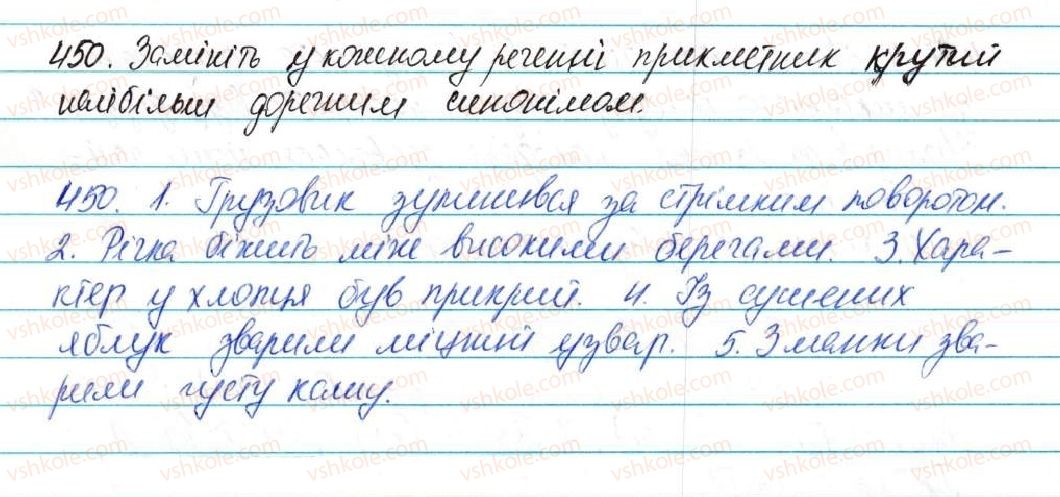 450. Замініть у кожному реченні прикметник крутий
найбільш доречним синонімом.
450. 1. Грузовик зупинився за стрімким поворотом.
2. Річка біжить між високими берегами. 3. Хара-
ктер у хлопця був прикрий. 4. Із сушених
яблук зварили міцний узвар. 5. З манки зва-
рили густу кашу.